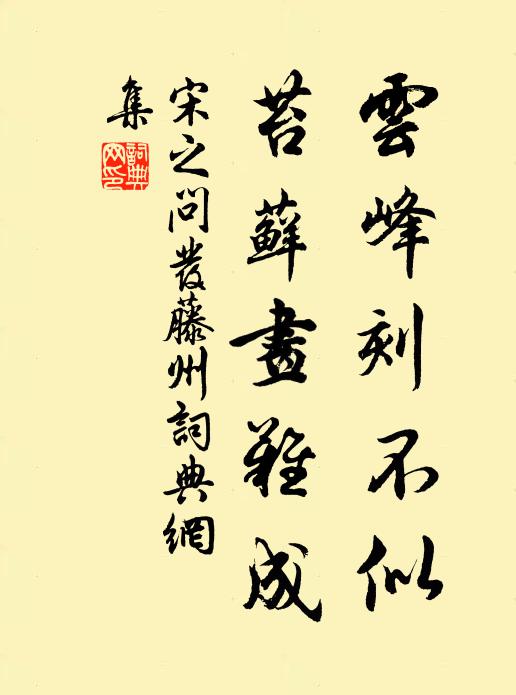 雲峰刻不似
苔蘚畫難成
宋之問發藤州詞典網
集
詞典網印